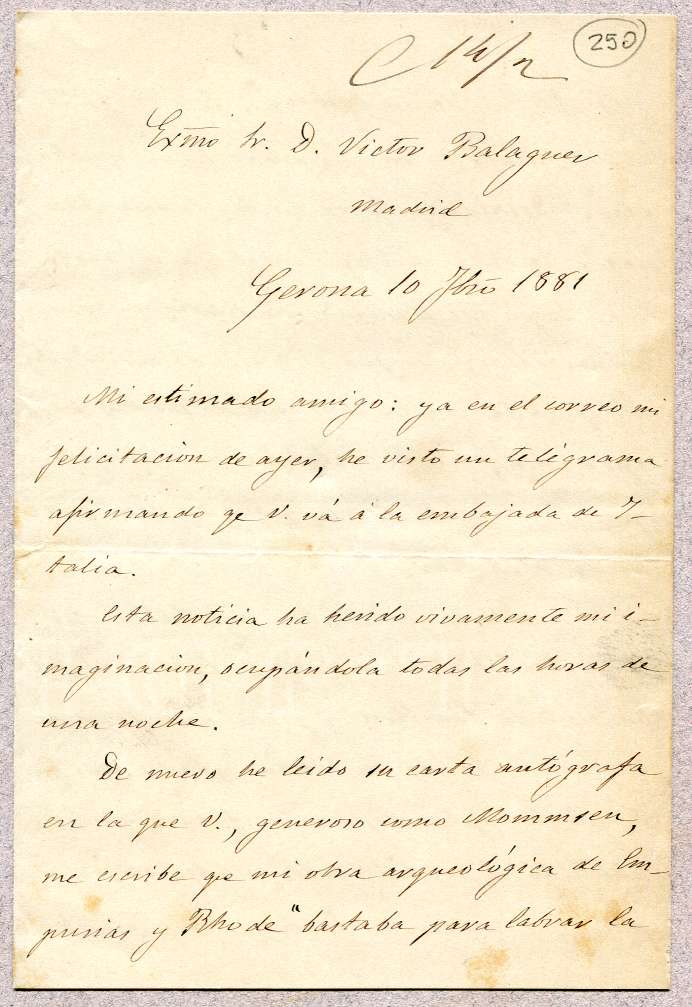 250
C 14/n
Exmo Sr. D. Victor Balaguer
Madrid
Gerona 10 Fbro 1881
Mi estimado amigo: ya en el correo mi
felicitacion de ayer, he visto un telégrama
afirmando qe V. vá á la embajada de I-
talia.
Esta noticia ha herido vivamente mi i-
maginacion, ocupándola todas las horas de
una noche.
De nuevo he leido su carta autógrafa
en la que V., generoso como Mommsen,
me escribe qe mi obra arqueológica de Em-
purias y Rhode "bastaba para labrar la